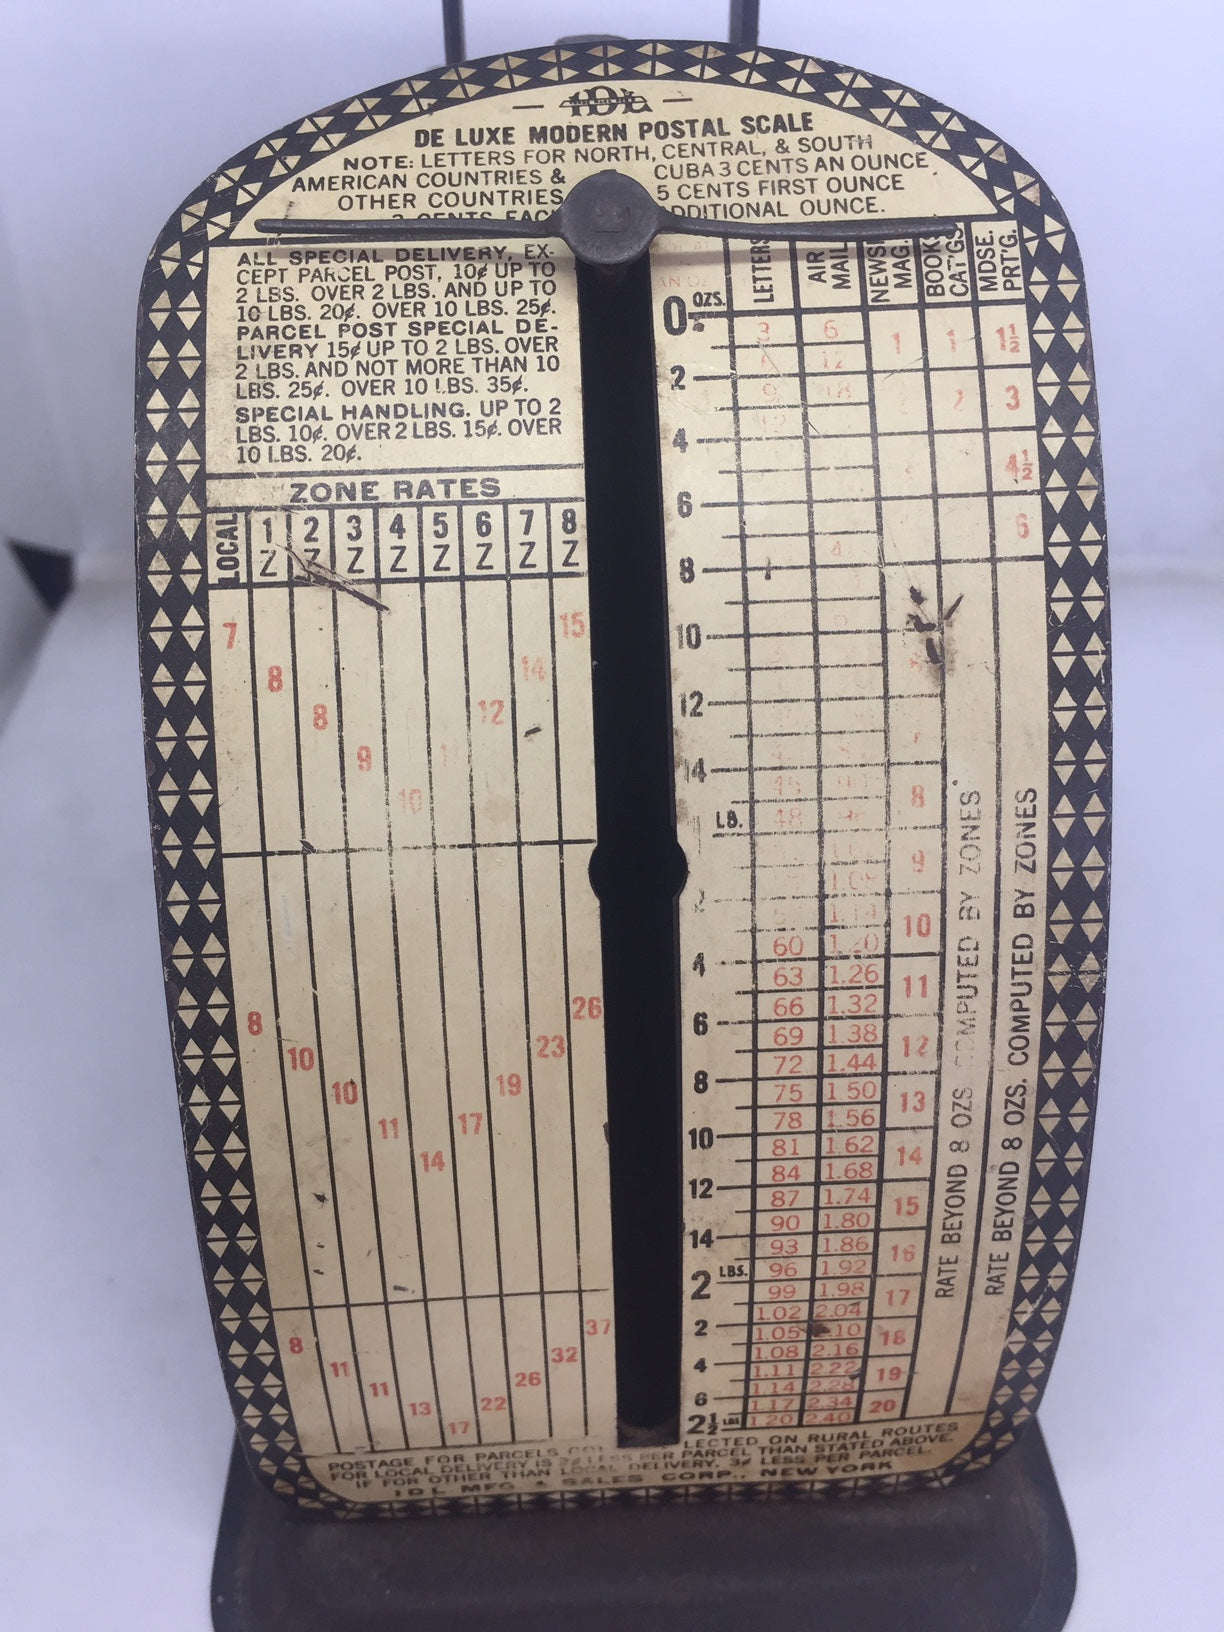 IDL
DE LUXE MODERN POSTAL SCALE
NOTE: LETTERS FOR NORTH, CENTRAL, & SOUTH
AMERICAN COUNTRIES & CUBA 3 CENTS AN OUNCE
OTHER COUNTRIES 5 CENTS FIRST OUNCE
3 CENTS EACH ADDITIONAL OUNCE.
ALL SPECIAL DELIVERY, EX-
CEPT PARCEL POST, 10¢ UP TO
2 LBS. OVER 2 LBS. AND UP TO
10 LBS. 20¢. OVER 10 LBS. 25¢.
PARCEL POST SPECIAL DE-
LIVERY 15¢ UP TO 2 LBS. OVER
2 LBS. AND NOT MORE THAN 10
LBS. 25¢. OVER 10 LBS. 35¢.
SPECIAL HANDLING. UP TO 2
LBS. 10¢. OVER 2 LBS. 15¢. OVER
10 LBS. 20¢.
ZONE RATES
LOCAL 1 Z 2 Z 3 Z 4 Z 5 Z 6 Z 7 Z 8 Z
7 8 8 9 10 11 12 14 15
8 10 10 11 14 17 19 23 26
8 11 11 13 17 22 26 32 37
LETTERS AIR MAIL NEWS. MAG. BOOKS CAT'GS MDSE. PRT'G.
0 OZS.
3 6 1 1 1½
12
2
9 18 2 3
4
4½
6
6
8
10
12
14
45 8
LB. 48
9
1.08
2
1.14 10
60 1.20
4
63 1.26 11
66 1.32
6
69 1.38 12
72 1.44
8
75 1.50 13
78 1.56
10
81 1.62 14
84 1.68
12
87 1.74 15
90 1.80
14
93 1.86 16
96 1.92
2 LBS.
99 1.98 17
1.02 2.04
2
1.05 2.10 18
1.08 2.16
4
1.11 2.22 19
1.14 2.28
6
1.17 2.34 20
2½ LBS 1.20 2.40
RATE BEYOND 8 OZS. COMPUTED BY ZONES
RATE BEYOND 8 OZS. COMPUTED BY ZONES
POSTAGE FOR PARCELS COLLECTED ON RURAL ROUTES
FOR LOCAL DELIVERY IS 2¢ LESS PER PARCEL THAN STATED ABOVE.
IF FOR OTHER THAN LOCAL DELIVERY, 3¢ LESS PER PARCEL.
IDL MFG. & SALES CORP., NEW YORK